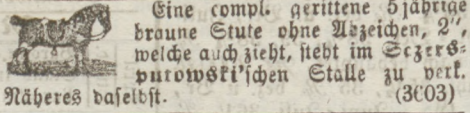 Eine compl. gerittene 5jährige
braune Stute ohne Abzeichen, 2",
welche auch zieht, steht im Sczers-
putowski'schen Stalle zu verk.
Näheres daselbst. (3603)